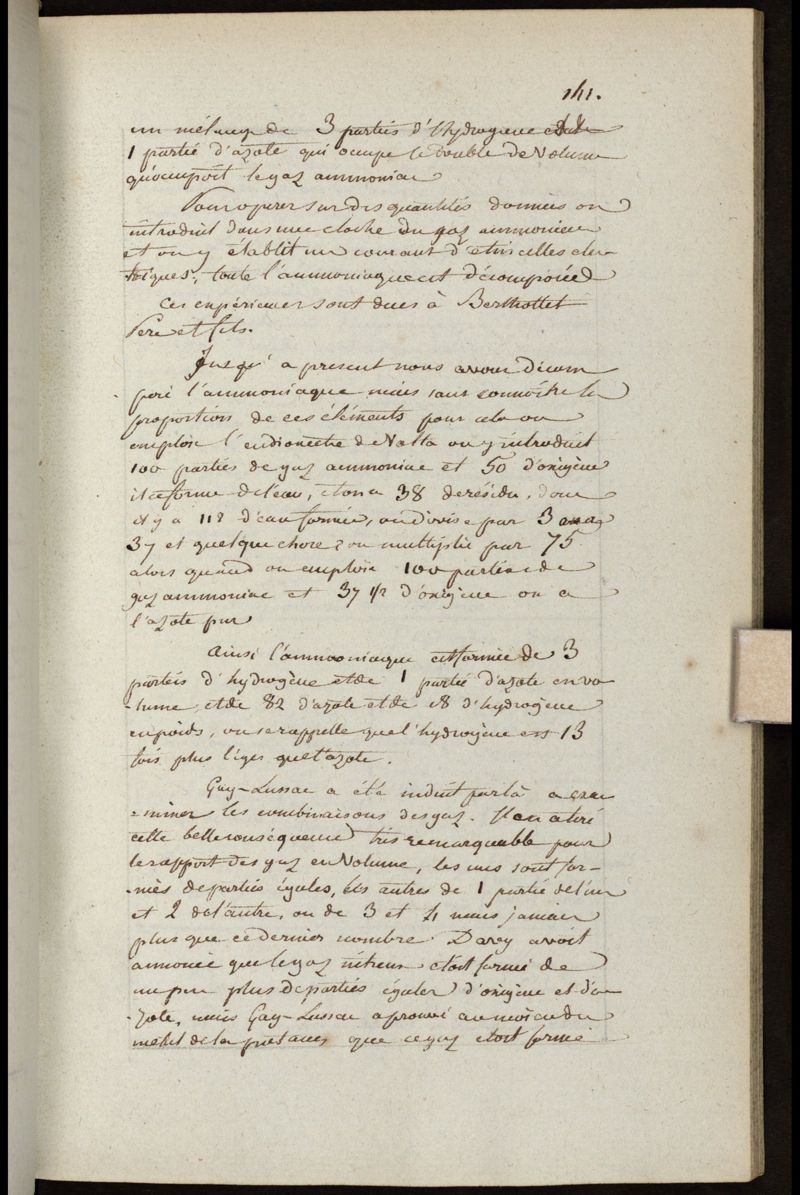 141.
un mélange de 3 parties d'hydrogène et de
1 partie d'azote qui occupe le double de Volume
qu'occupoit le gaz ammoniac
Pour operer sur des quantités données on
introduit dans une cloche du gaz ammoniac
et on y établit un courant d'etincelles elec-
triques, toute l'ammoniaque est décomposée
Ces expériences sont dues à Berthollet
Pere et fils.
Jusqu'a present nous avons décom
posé l'ammoniaque mais sans connoître la
proportion de ces éléments pour cela on
emploie l'eudiometre de Volta on y introduit
100 parties de gaz ammoniac et 50 d'oxigène
il se forme de l'eau, et on a 38 de résidu, donc
il y a 112 d'eau formée, on divise par 3 on a
37 et quelque chose, on multiplie par 75
alors quand on emploie 100 parties de
gaz ammoniac et 37 1/2 d'oxigène on a
l'azote pur
Ainsi l'ammoniaque est formée de 3
parties d'hydrogène et de 1 partie d'azote en vo
-lume, et de 82 d'azote et de 18 d'hydrogène
en poids, on se rappelle que l'hydrogène est 13
fois plus léger que l'azote.
Gay-Lussac a été induit par là a exa
-miner les combinaisons des gaz. Il en a tiré
cette belle conséquence très remarquable pour
le rapport des gaz en Volume, les uns sont for-
-més de parties égales, les autres de 1 partie de l'un
et 2 de l'autre, ou de 3 et 4 mais jamais
plus que ce dernier nombre. Davy avoit
annoncé que le gaz nitreux etoit formé de
un peu plus de parties égales d'oxigène et d'a-
-zote, mais Gay-Lussac a prouvé au moien du
métal de la potasse que ce gaz etoit formé